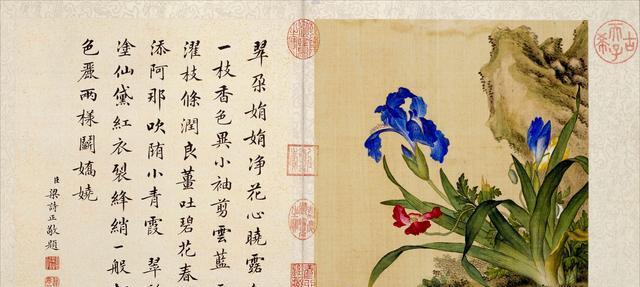 古希天子
翠朶娟娟净花心曉露
一枝香色異小袖剪雲藍
濯枝條潤良薑吐碧花春
添阿那吹随小青霞 翠
塗仙黛紅衣裂絳綃一般
色麗兩樣鬭嬌嬈
臣梁詩正敬題